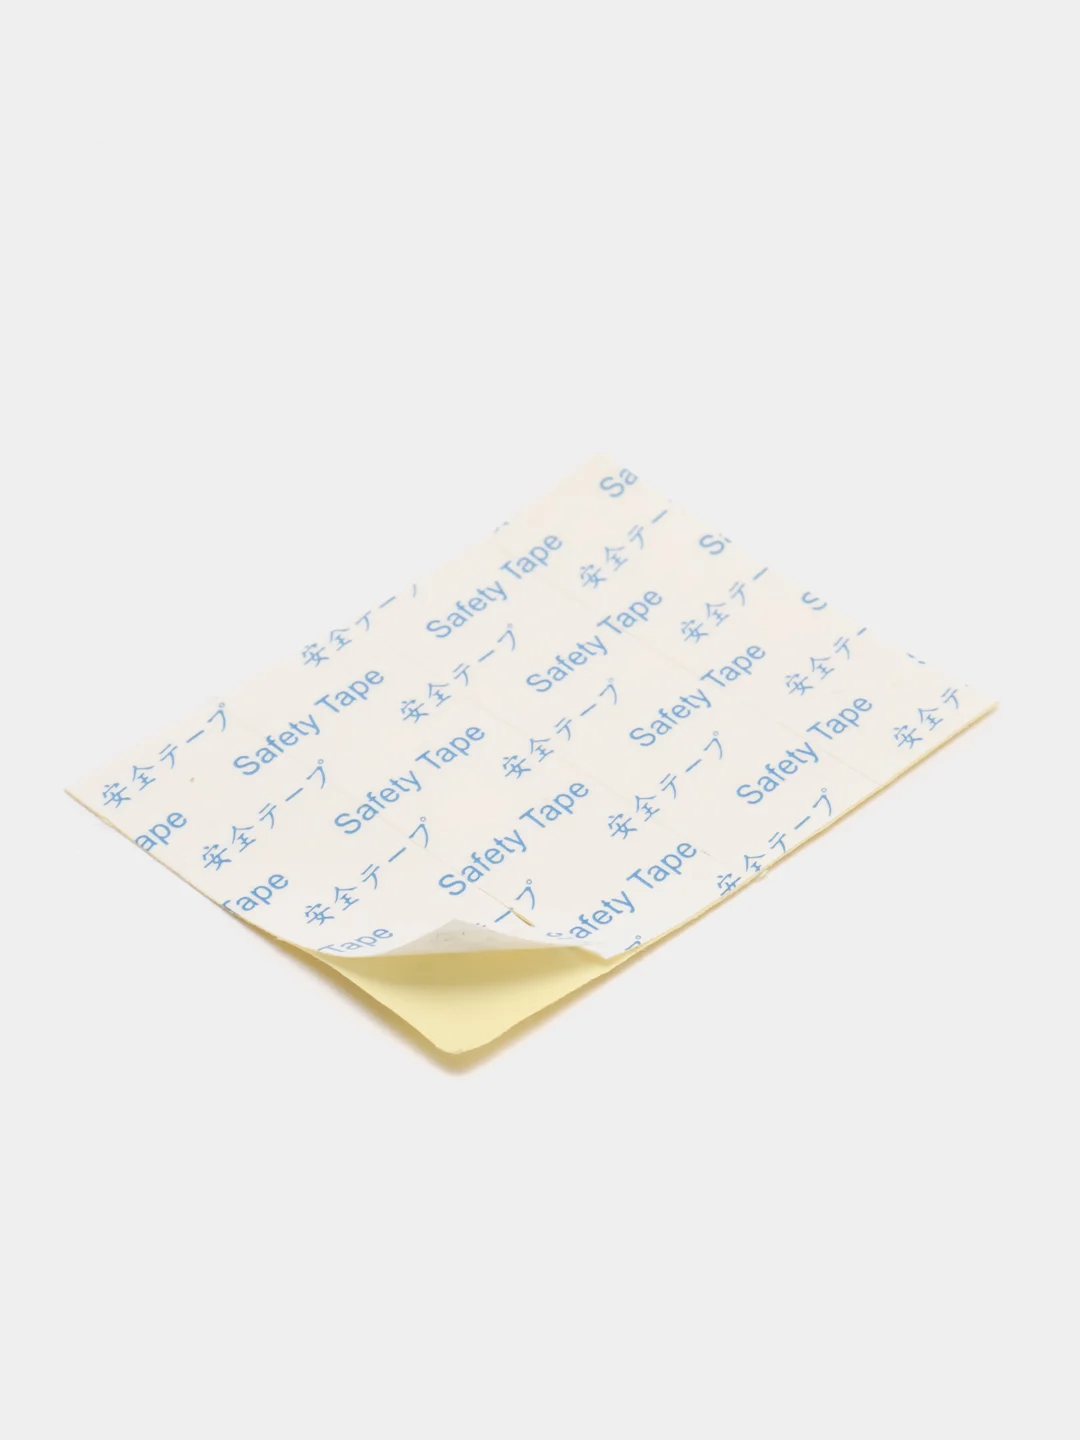 安全テープ 安全テー
ape Safety Tape Safety Tape Sa
安全テープ 安全テープ 安全テー
Tape Safety Tape Safety Tape S
安全テープ 安全テープ 安全テー
Tape Safety Tape Safety Tape S
ープ 安全テープ 安全テー
Safety Tape Safety Tape
安全テープ 安全テ